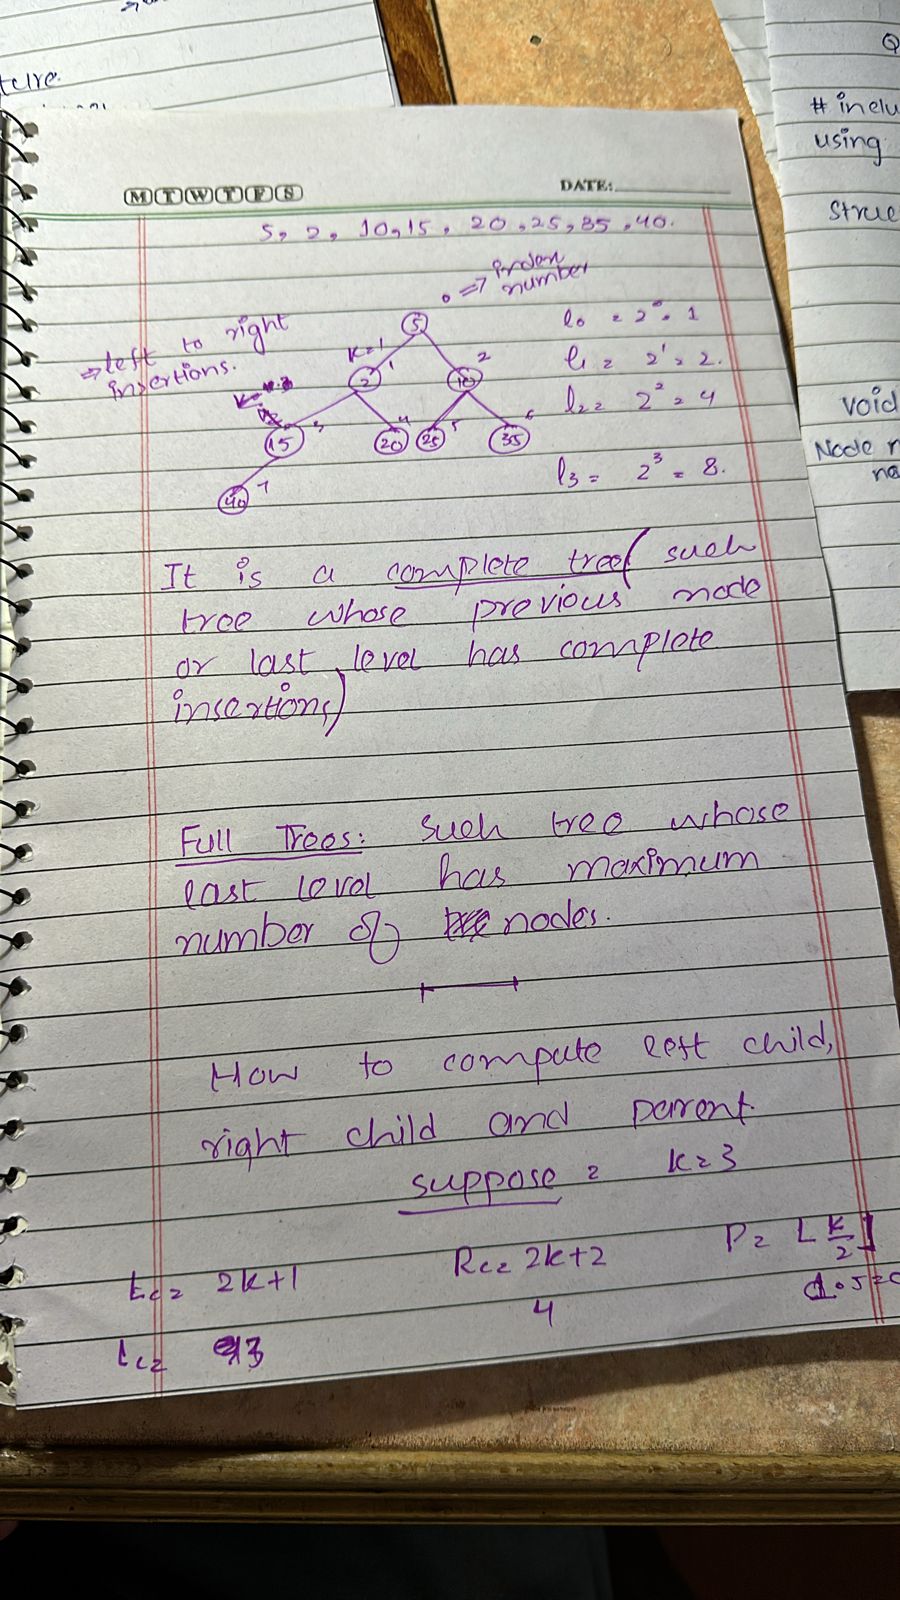 ture
# inclu
using
Struc
void
Node n
M T W T F S
DATE:
5, 2, 10, 15, 20, 25, 35, 40.
0 => index
number
=> left to right
insertions.
5
K=1
1
2
2
10
l0 = 2^0 = 1
l1 = 2^1 = 2.
l2 = 2^2 = 4
l3 = 2^3 = 8.
15 3
20 4
25 5
35 6
40 7
It is a complete tree( such
tree whose previous node
or last level has complete
insertions)
Full Trees: such tree whose
last level has maximum
number of nodes.
How to compute left child,
right child and parent.
suppose = k=3
Lc= 2k+1
Rc= 2k+2
P= ⌊k/2⌋
4
Lc= 3